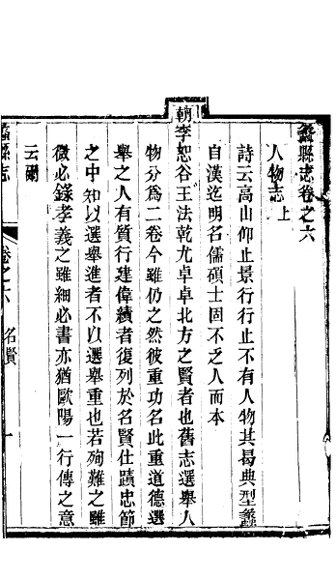 蠡縣志卷之六
人物志 上
詩云高山仰止景行行止不有人物其曷典型蠡
自漢迄明名儒碩士固不乏人而本
朝李恕谷王法乾尤卓卓北方之賢者也舊志選舉人
物分為二卷今雖仍之然彼重功名此重道德選
舉之人有質行建偉績者復列於名賢仕蹟忠節
之中知以選舉進者不以選舉重也若殉難之雖
微必錄孝義之雖細必書亦猶歐陽一行傳之意
云爾
蠡縣志
卷之六 名賢 一